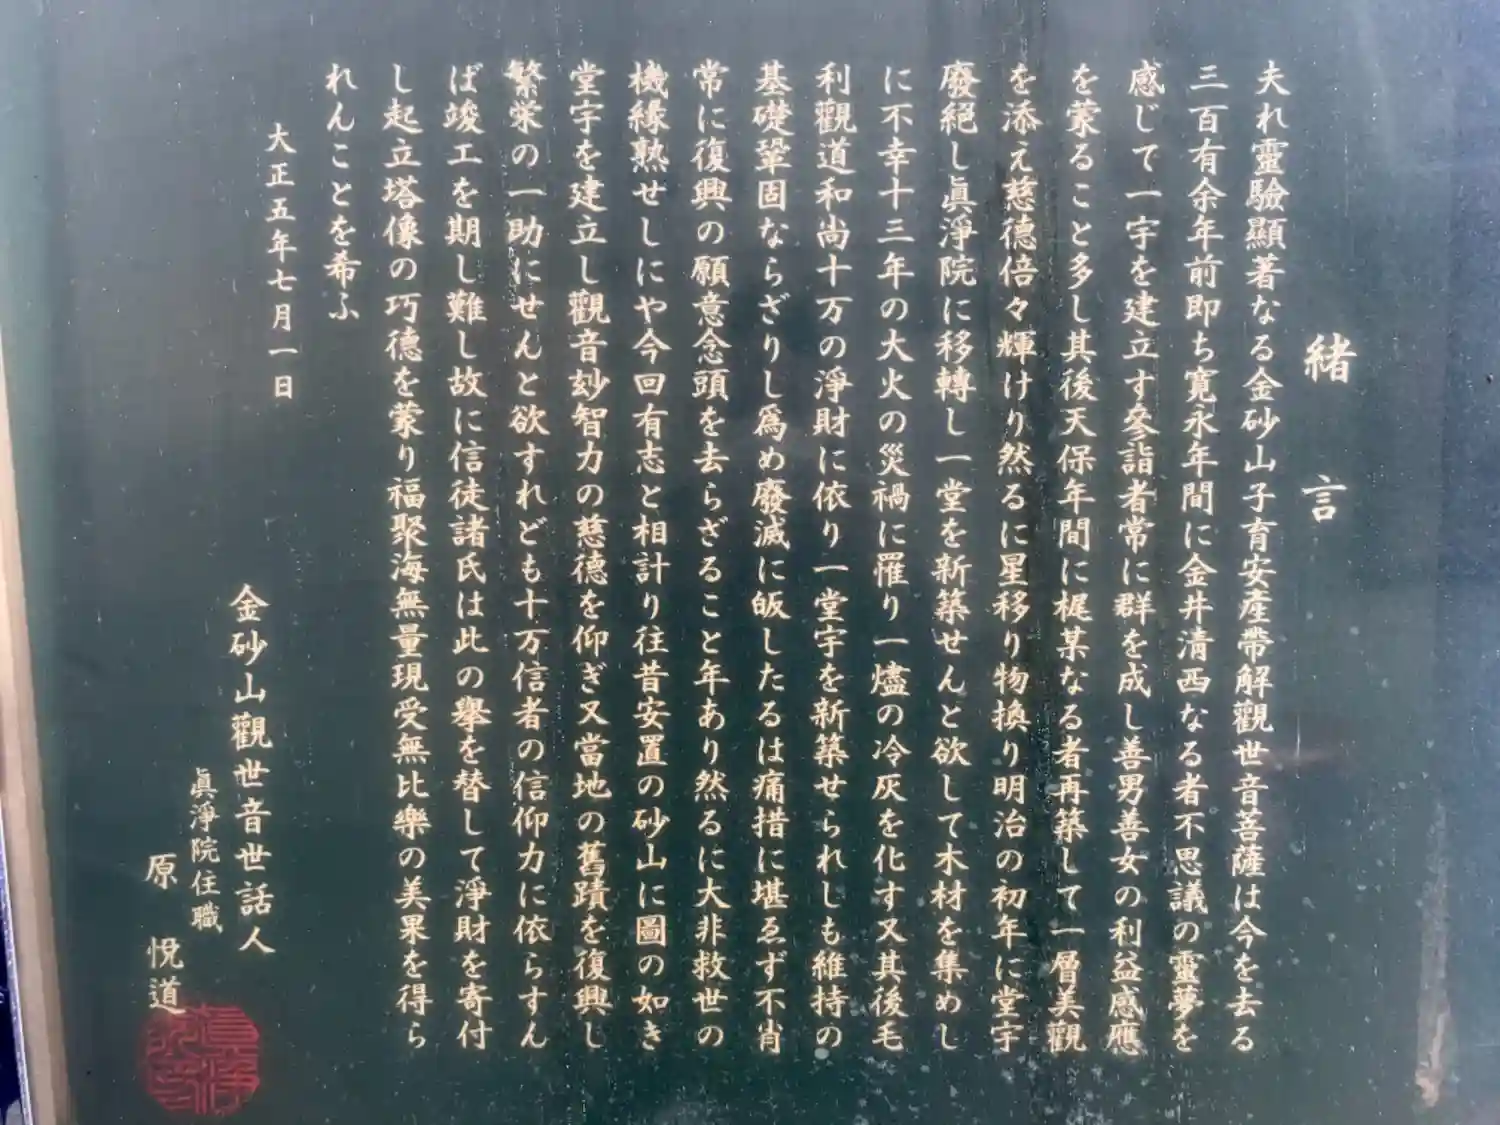 緒言
夫れ靈驗顯著なる金砂山子育安産帶解觀世音菩薩は今を去る
三百有余年前即ち寛永年間に金井清西なる者不思議の靈夢を
感じて一宇を建立す參詣者常に群を成し善男善女の利益感應
を蒙ること多し其後天保年間に梶某なる者再築して一層美觀
を添え慈德倍々輝けり然るに星移り物換り明治の初年に堂宇
廢絕し眞淨院に移轉し一堂を新築せんと欲して木材を集めし
に不幸十三年の大火の災禍に罹り一燼の冷灰を化す又其後毛
利觀道和尚十万の淨財に依り一堂宇を新築せられしも維持の
基礎鞏固ならざりし爲め廢滅に皈したるは痛措に堪ゑず不肖
常に復興の願意念頭を去らざること年あり然るに大非救世の
機緣熟せしにや今回有志と相計り往昔安置の砂山に圖の如き
堂宇を建立し觀音玅智力の慈德を仰ぎ又當地の舊蹟を復興し
繁栄の一助にせんと欲すれども十万信者の信仰力に依らすん
ば竣工を期し難し故に信徒諸氏は此の擧を替して淨財を寄付
し起立塔像の巧德を蒙り福聚海無量現受無比樂の美果を得ら
れんことを希ふ
大正五年七月一日
金砂山觀世音世話人
眞淨院住職
原悅道